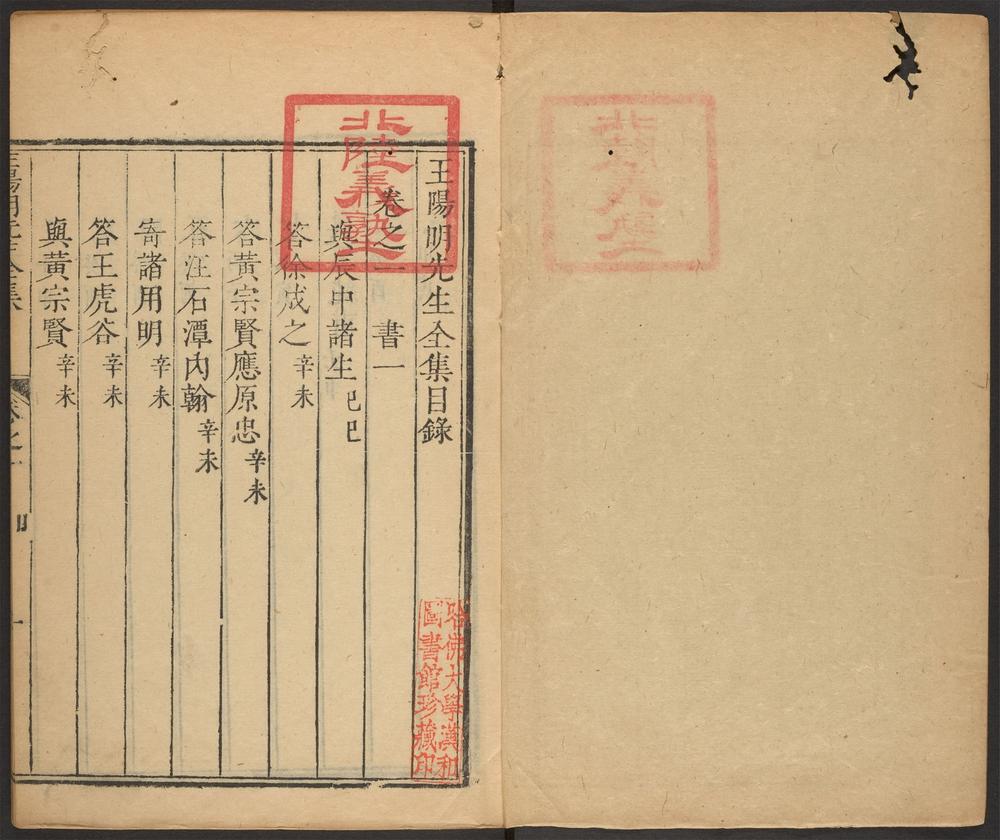 王陽明先生全集目錄
卷之一 書一
與辰中諸生 己巳
答徐成之 辛未
答黃宗賢應原忠 辛未
答汪石潭內翰 辛未
寄諸用明 辛未
答王虎谷 辛未
與黃宗賢 辛未
王陽明先生全集
卷之一
目
一
北陸義塾
哈佛大學漢和
圖書館珍藏印